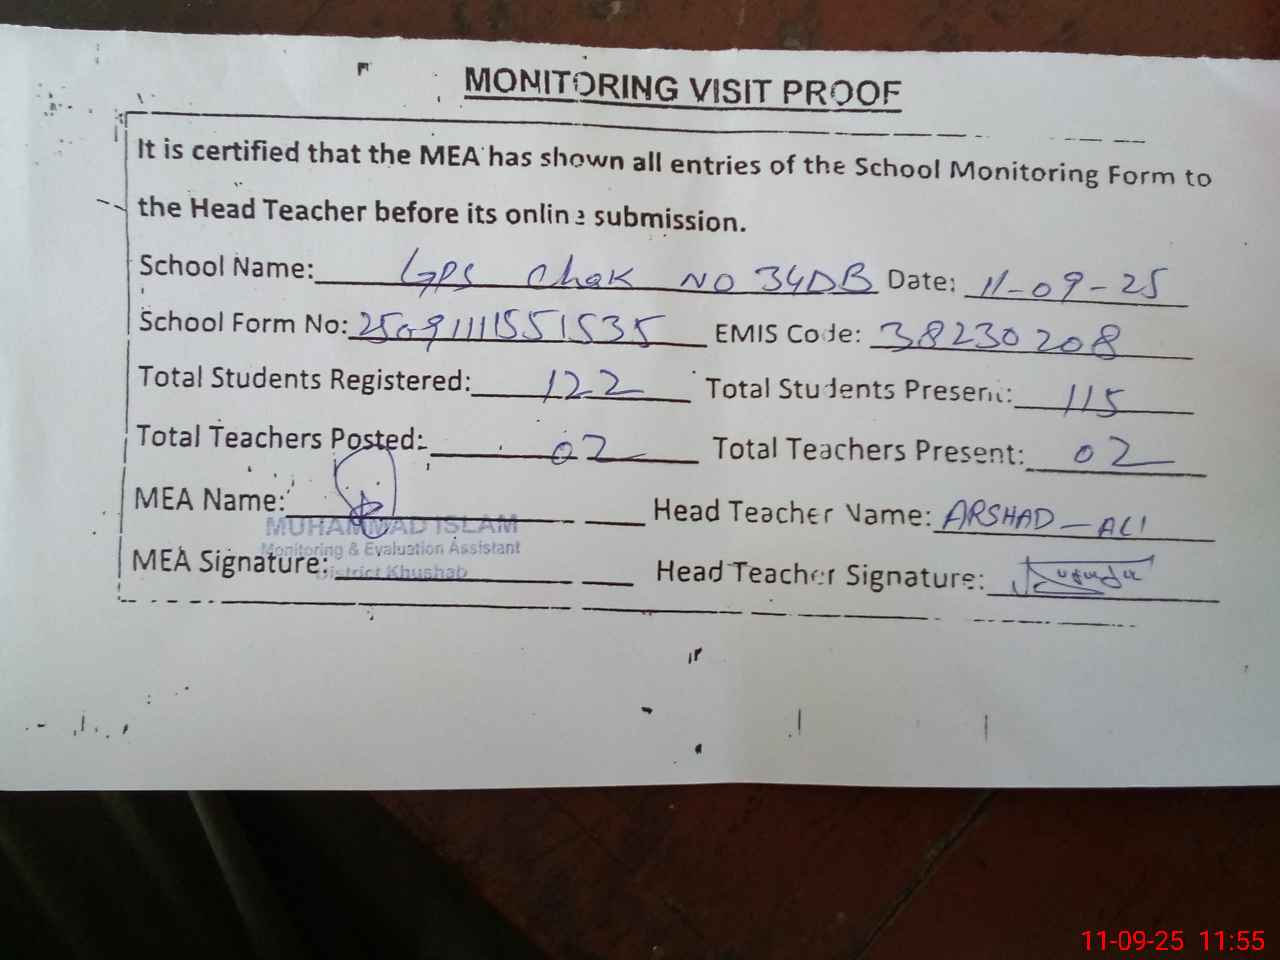 MONITORING VISIT PROOF
It is certified that the MEA has shown all entries of the School Monitoring Form to
the Head Teacher before its online submission.
School Name: GPS Chak NO 34DB Date: 11-09-25
School Form No: 2509111551535 EMIS Code: 38230208
Total Students Registered: 122 Total Students Present: 115
Total Teachers Posted: 02 Total Teachers Present: 02
MEA Name: Head Teacher Name: ARSHAD-ALI
MUHAMMAD ISLAM
Monitoring & Evaluation Assistant
District Khushab
MEA Signature: Head Teacher Signature:
11-09-25 11:55